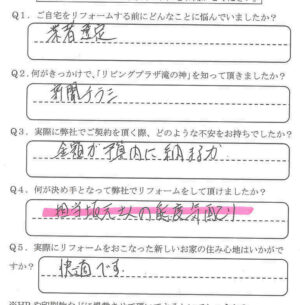 Q1. ご自宅をリフォームする前にどんなことに悩んでいましたか？
業者選定
Q2. 何がきっかけで、「リビングプラザ滝の神」を知って頂きましたか？
新聞チラシ
Q3. 実際に弊社でご契約を頂く際、どのような不安をお持ちでしたか？
金額が予算内に納まるか
Q4. 何が決め手となって弊社でリフォームをして頂けましたか？
担当 の態度気配り
Q5. 実際にリフォームをおこなった新しいお家の住み心地はいかがで
すか？
快適です。